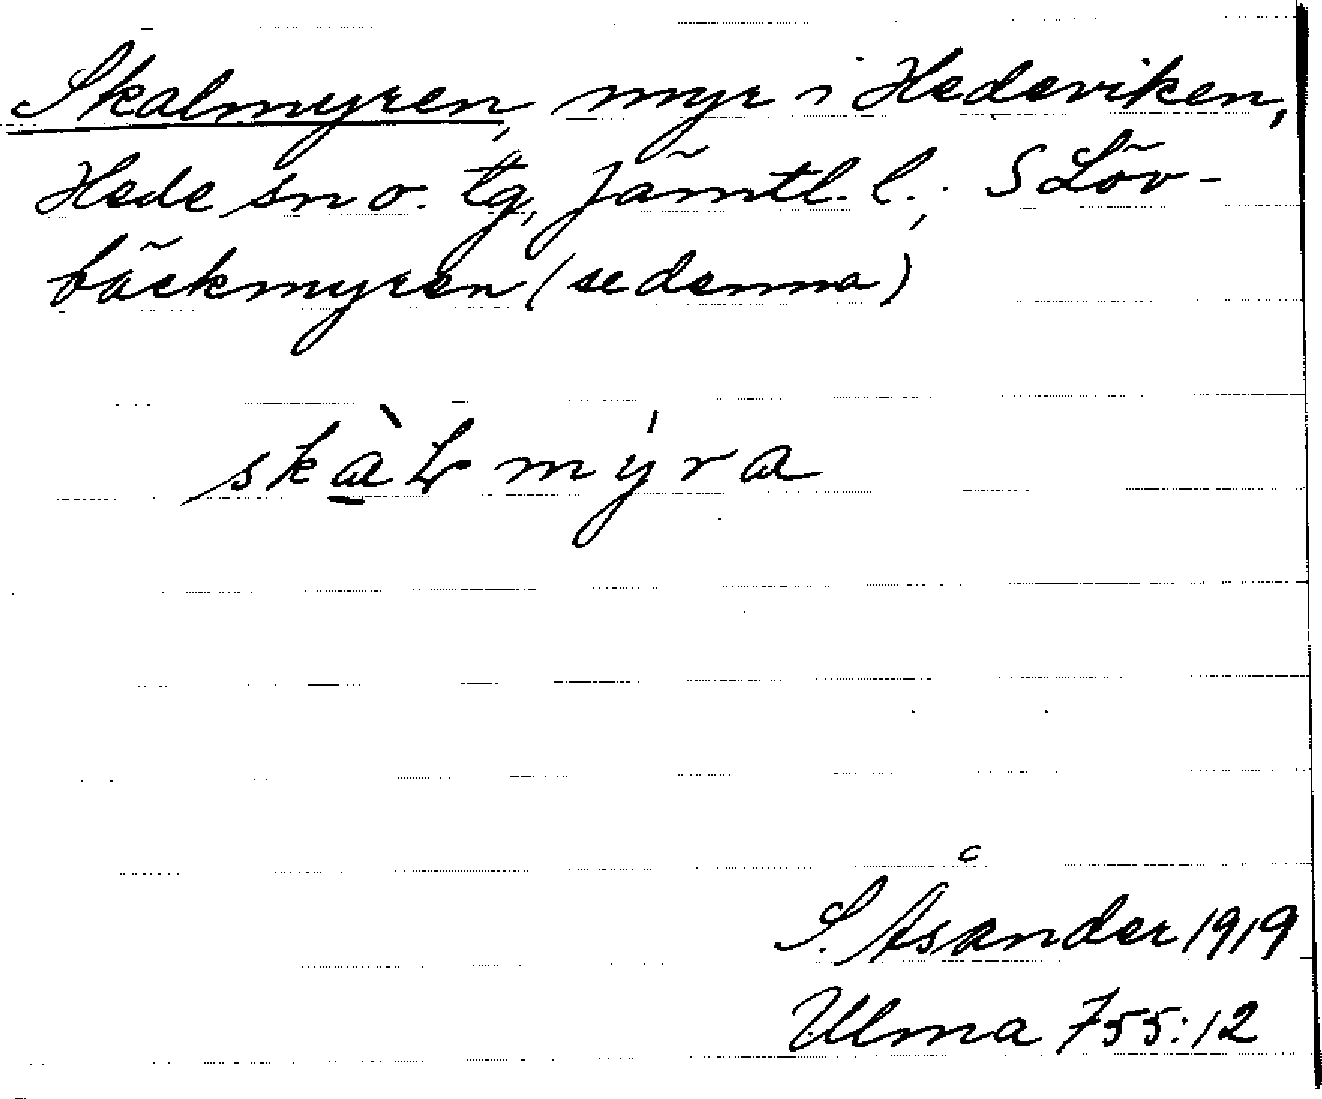 Skalmyren, myr i Hedeviken,
Hede sn o. tg, Jämtl. l.; S Löv-
bäckmyren (se denna)
skàLmýra
S. Åsander 1919
Ulma 755:12